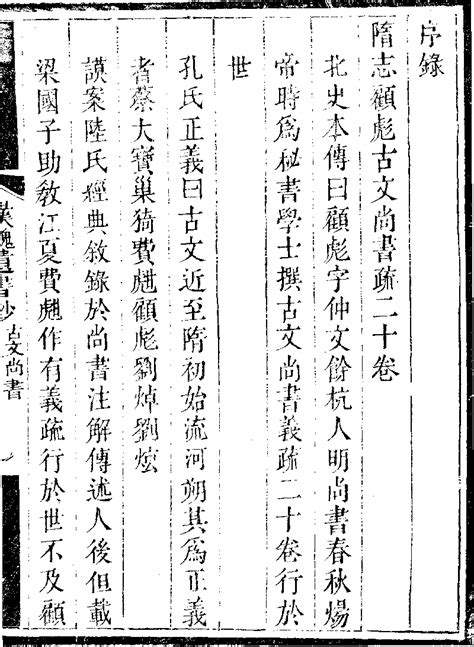 序錄
隋志顧彪古文尚書疏二十卷
北史本傳曰顧彪字仲文餘杭人明尚書春秋煬
帝時爲秘書學士撰古文尚書義疏二十卷行於
世
孔氏正義曰古文近至隋初始流河朔其爲正義
者蔡大寶巢猗費甝顧彪劉焯劉炫
謨案陸氏經典敘錄於尚書注解傳述人後但載
梁國子助敎江夏費甝作有義疏行於世不及顧
漢魏遺書鈔 古文尚書